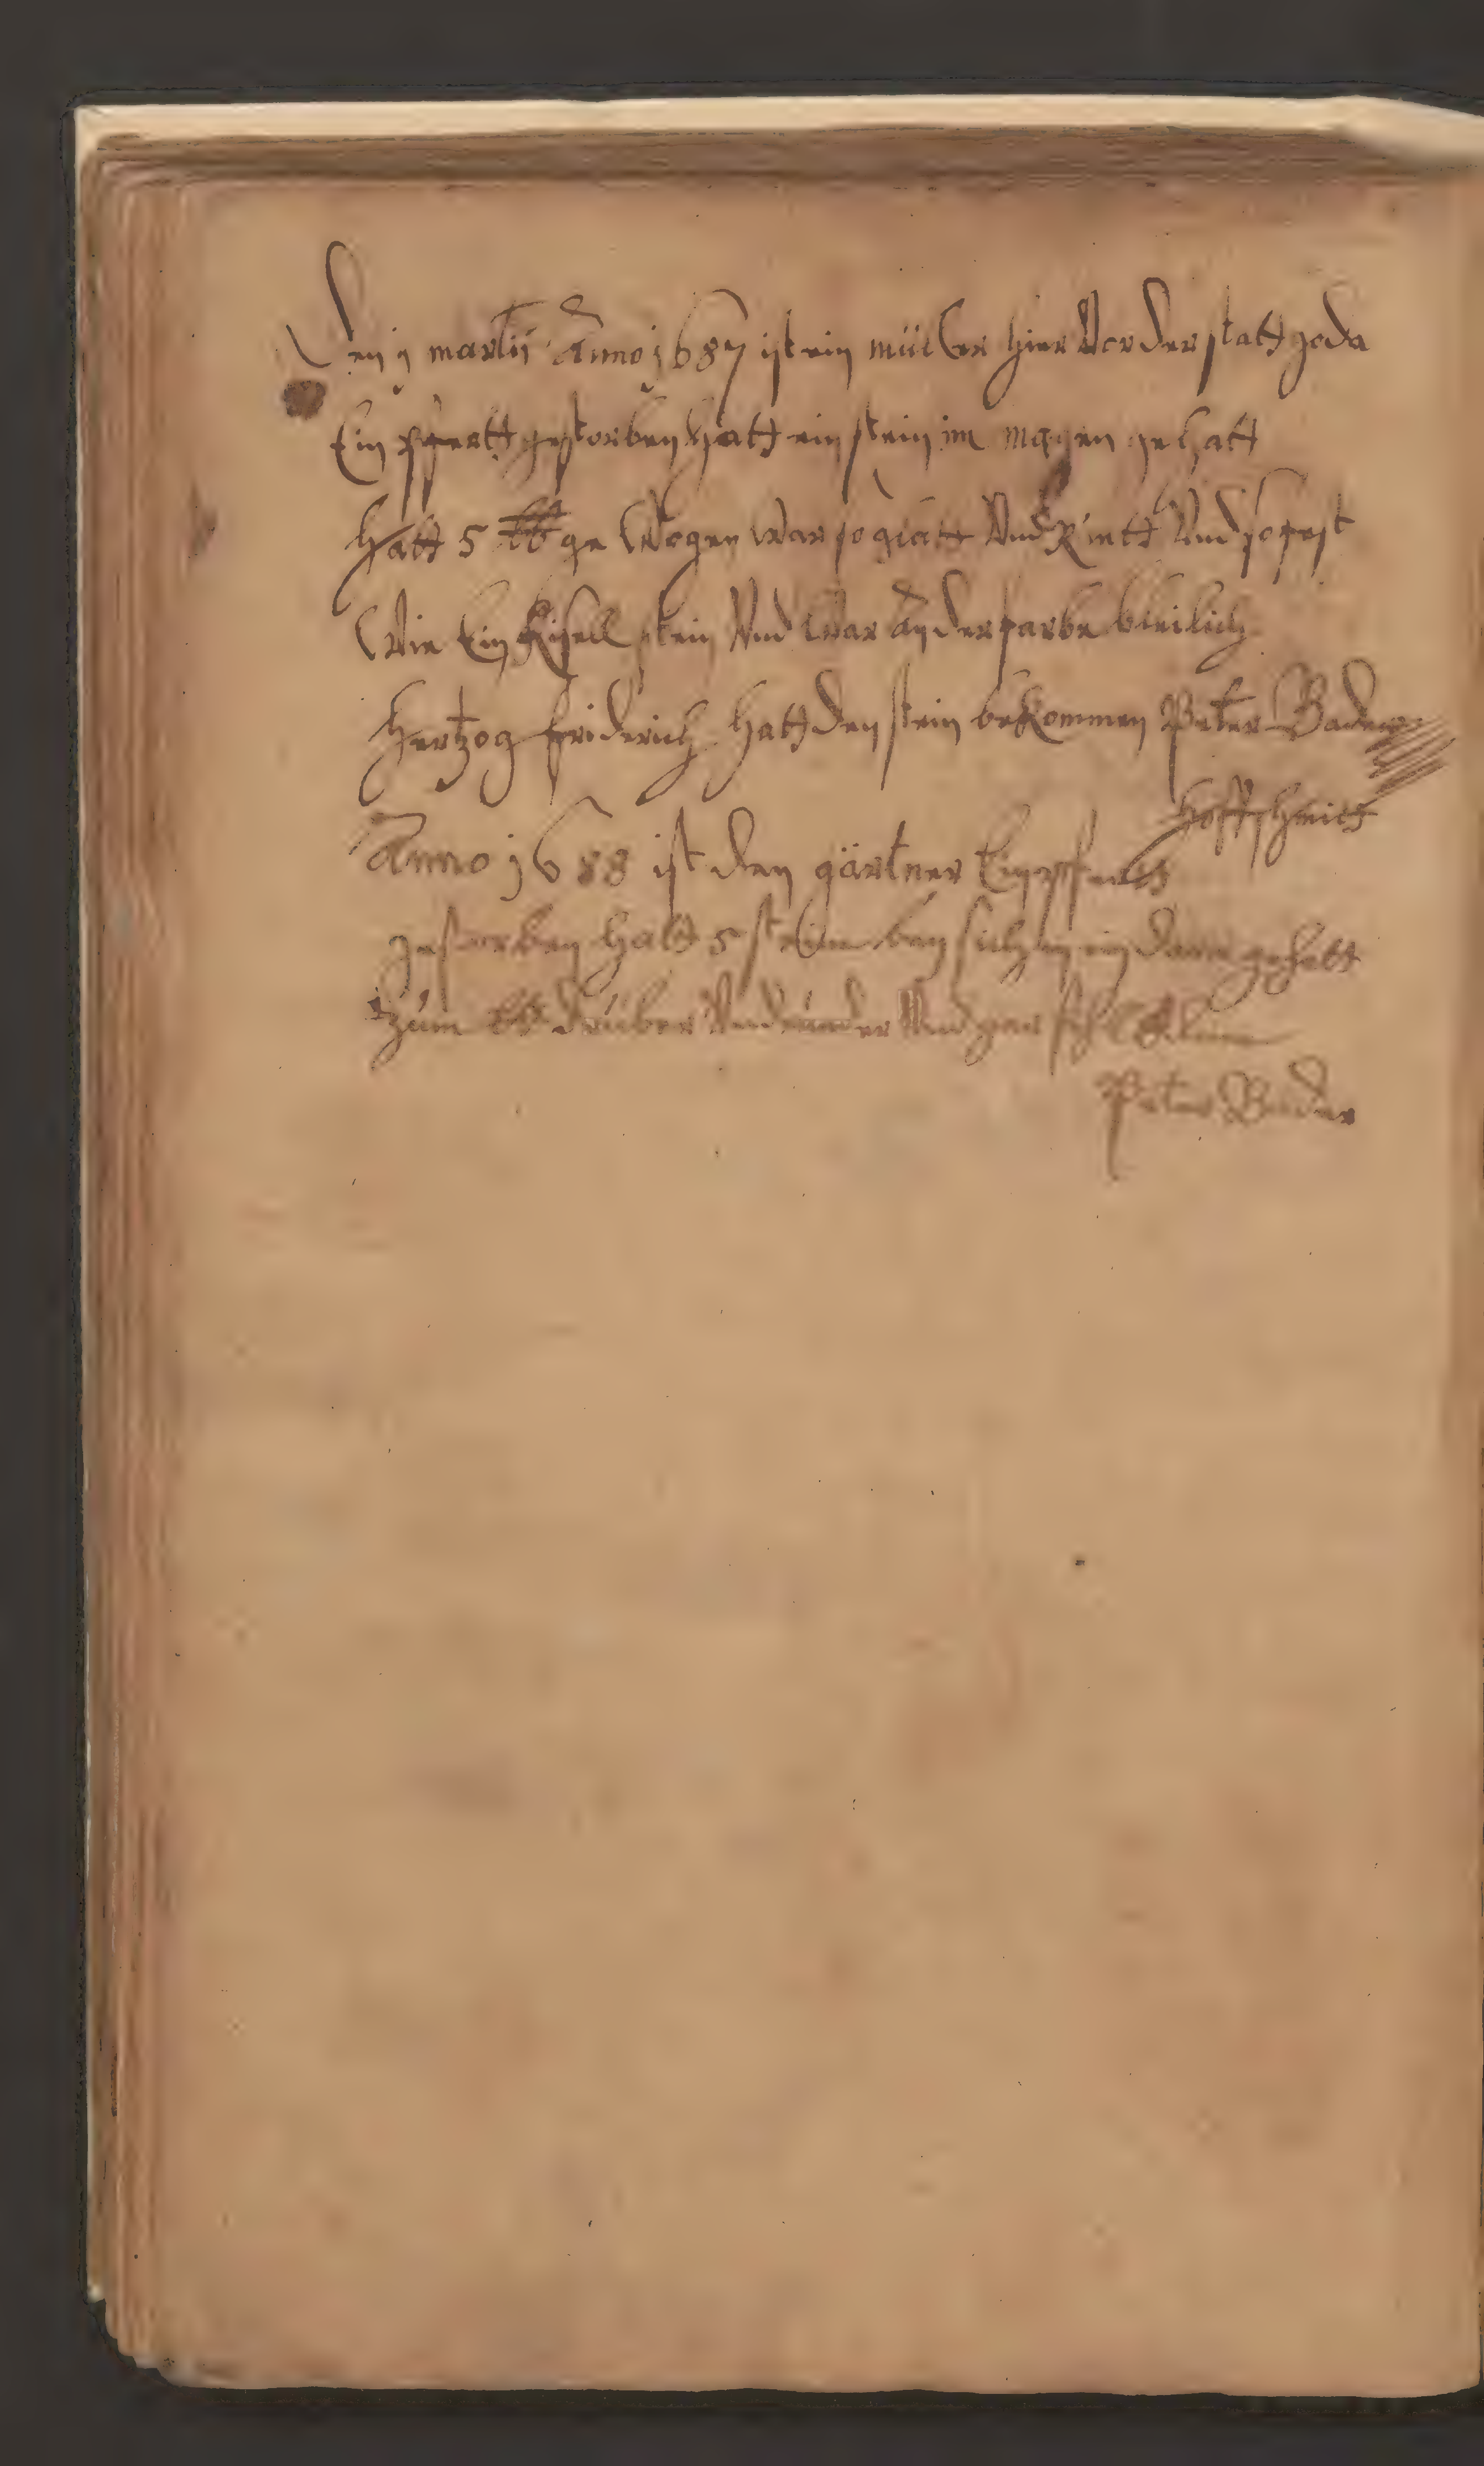 Den 9 martii Anno 1687 ist ein müller hier Vor der statt goda
Ein pfertt gestorben hatt ein stein im magen gehatt
hatt 5 ℔ ge Wogen War so glatt Vnd Rintt Vnd so fest
Wie Ein Kisell stein Vnd War an der farbe bleilich
hertzog friderich hatt den stein bekommen Peter Bader
hoffschmitt
Anno 1688 ist den gärtner Ein pfertt
gestorben hatt 5 steine bey sich in ein darm gehatt
zum ℔ drüber Vnd Vnder Vnd gar
Peter Bader